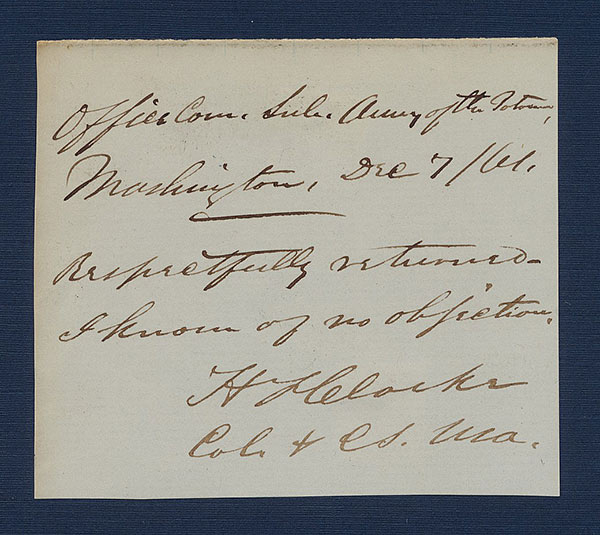 Office Com. Sub. Army of the Potomac,
Washington, Dec 7/61.
Respectfully returned -
I know of no objection.
H F Clarke
Col. & CS. USA.